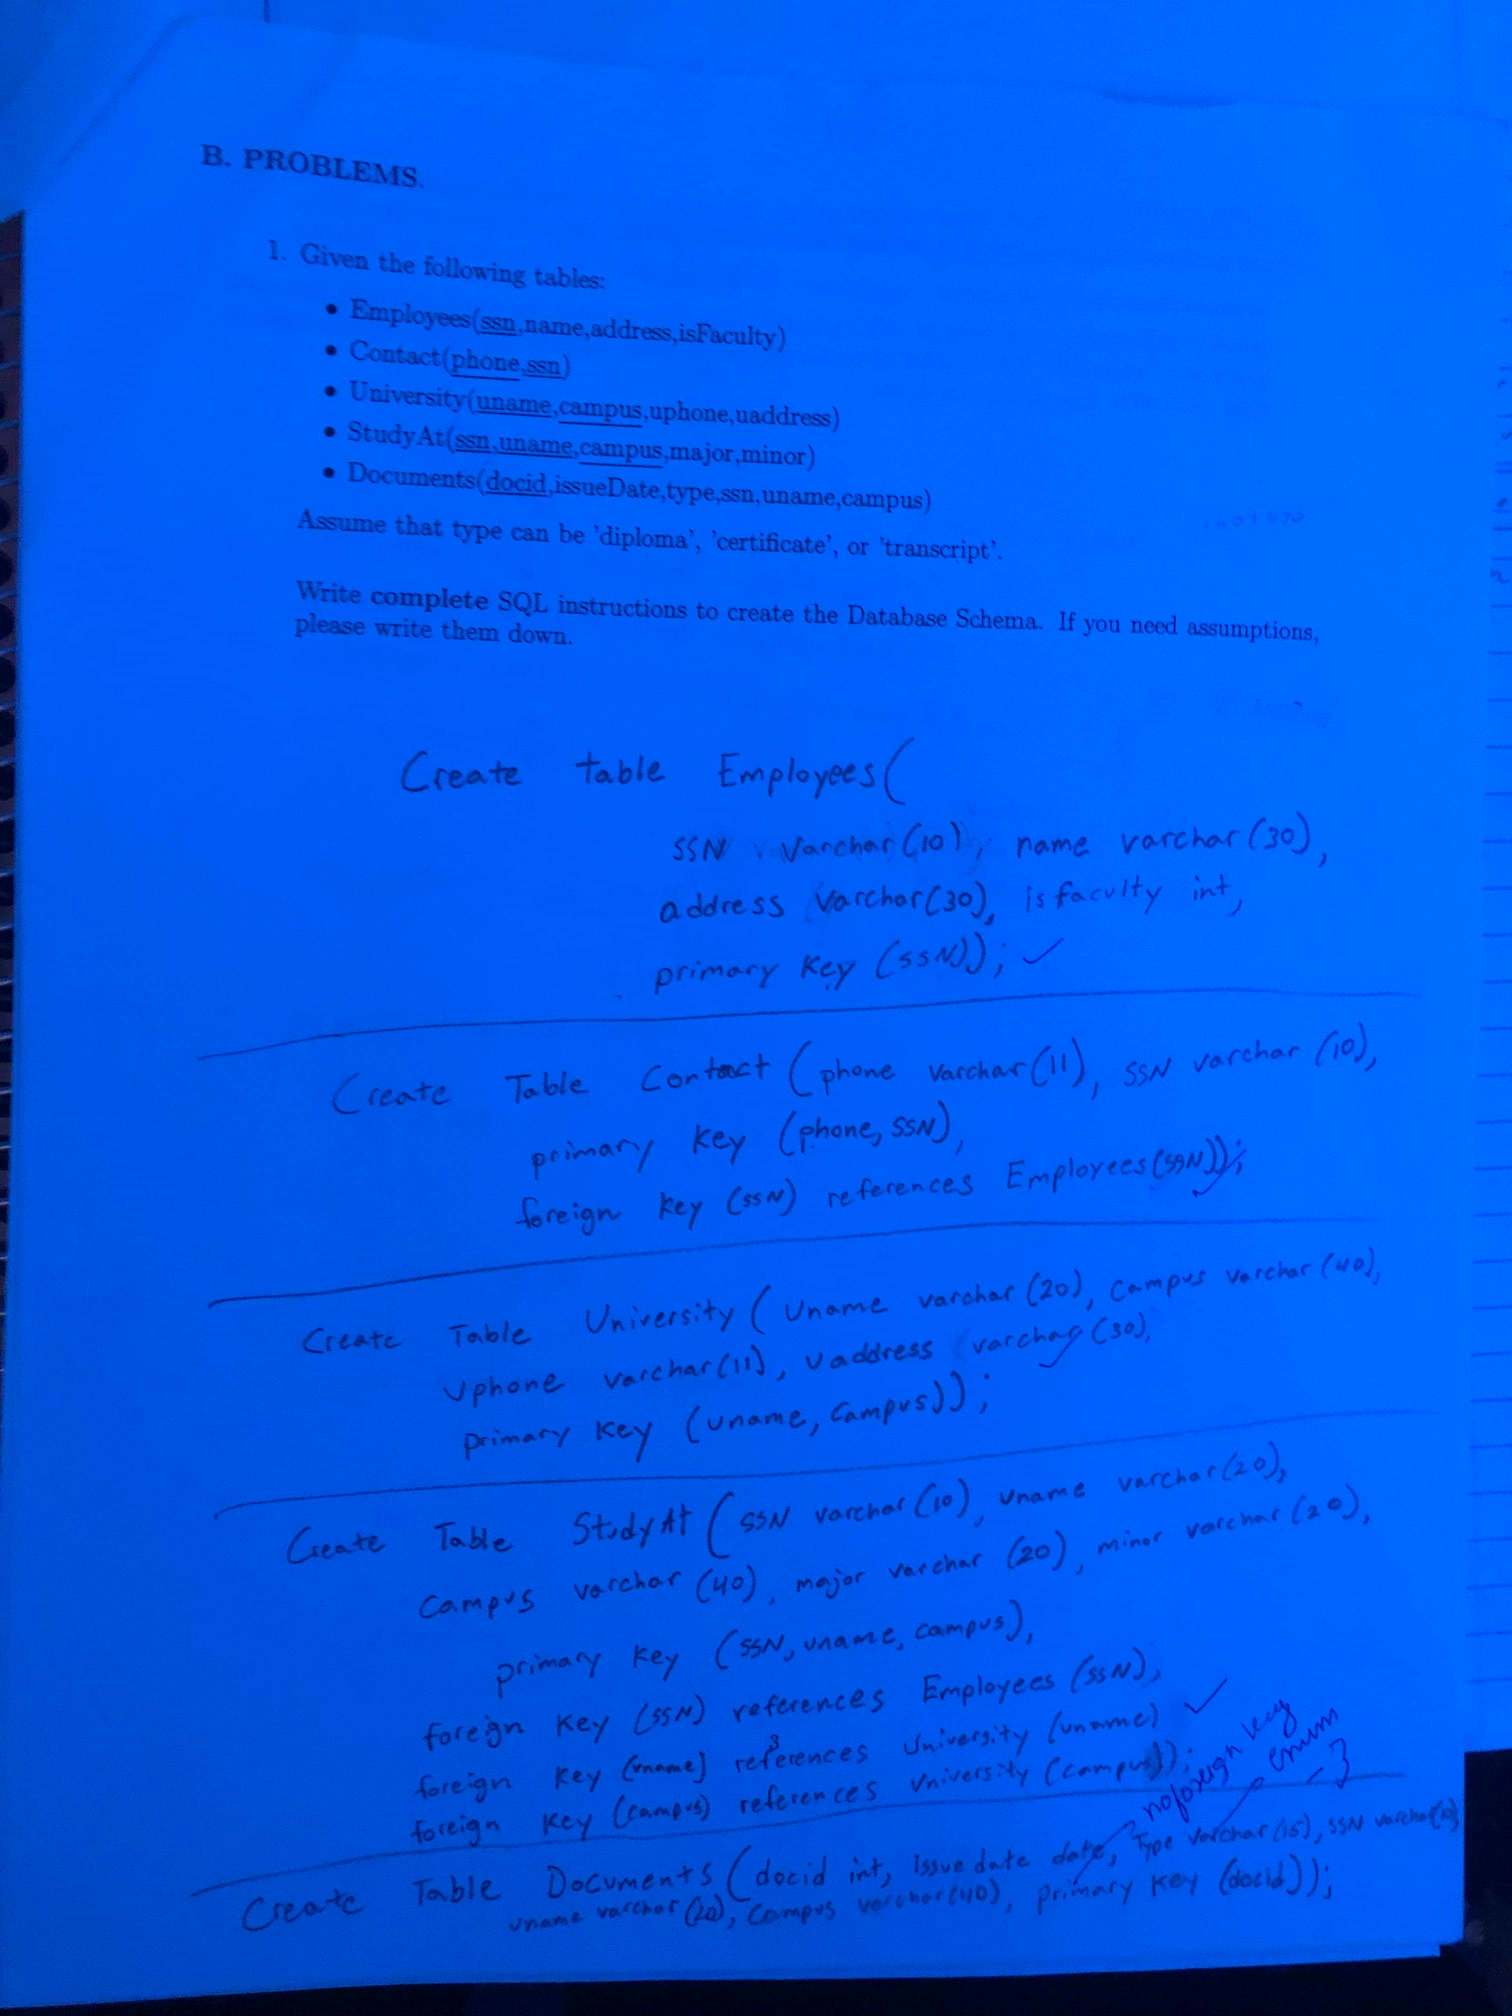 B. PROBLEMS.
1. Given the following tables:
• Employees(ssn,name,address,isFaculty)
• Contact(phone,ssn)
• University(uname,campus,uphone,uaddress)
• StudyAt(ssn,uname,campus,major,minor)
• Documents(docid,issueDate,type,ssn,uname,campus)
Assume that type can be 'diploma', 'certificate', or 'transcript'.
Write complete SQL instructions to create the Database Schema. If you need assumptions,
please write them down.
Create table Employees(
SSN varchar(10), name varchar(30),
address varchar(30), isfaculty int,
primary key (SSN)); ✓
Create Table Contact (phone varchar(11), SSN varchar(10),
primary key (phone, SSN),
foreign key (SSN) references Employees(SSN));
Create Table University (Uname varchar(20), campus varchar(40),
Uphone varchar(11), Uaddress varchar(30),
primary key (Uname, Campus));
Create Table StudyAt (SSN varchar(10), uname varchar(20),
Campus varchar(40), major varchar(20), minor varchar(20),
primary key (SSN, uname, campus),
foreign key (SSN) references Employees (SSN),
foreign key (uname) references University (uname) ✓
foreign key (campus) references University (campus));
no foreign key
enum
-3
Create Table Documents (docid int, Issuedate date, Type varchar(15), SSN varchar(10)
uname varchar(20), Campus varchar(40), primary key (docid));